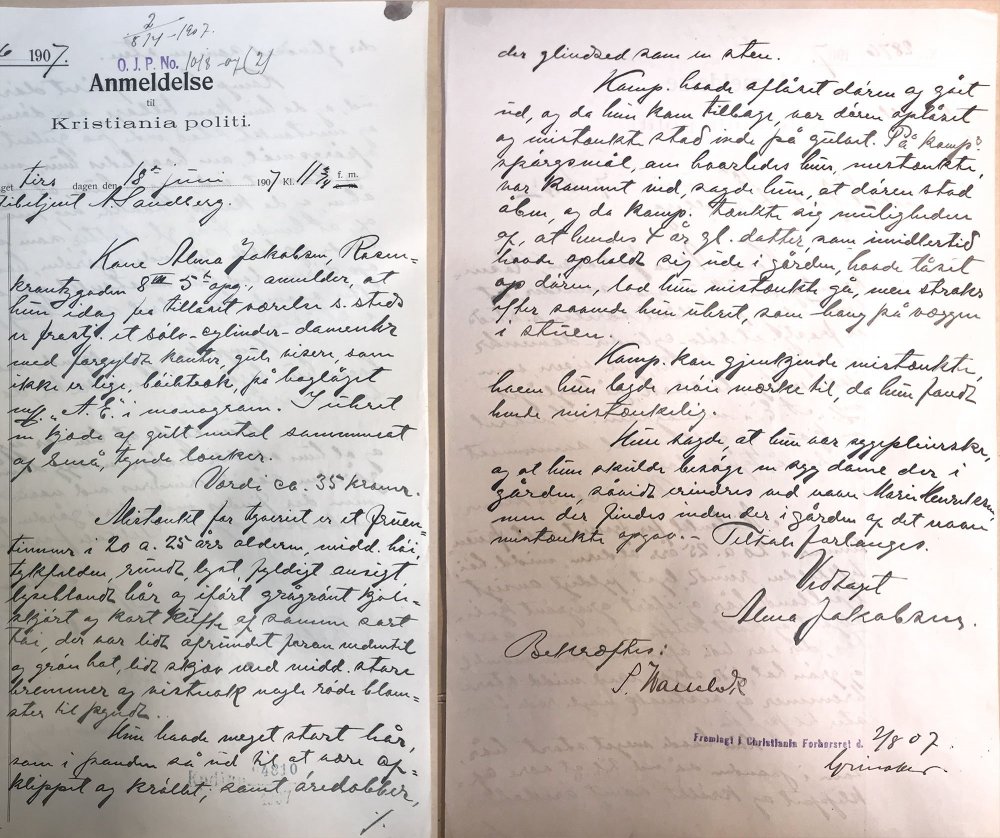 2
8/4-1907.
6 1907.
O. J. P. No. 1018-07 (2)
Anmeldelse
til
Kristiania politi.
get tirs dagen den 18de juni 1907 Kl. 11 3/4 f. m.
tibetjent A. Sandberg.
Kone Alma Jakobsen, Rosen-
krantzgaden 8 III 5te opg, anmelder, at
hun idag fra tillåset værelse s. steds
er frastj. et sølv-cylinder-dameuhr
med forgyldte kanter, gule visere, som
ikke er lige, på baglåget
"A. E." i monogram. I uhret
en kjæde af gult metal sammensat
af små tynde lænker.
Værdi ca 35 kroner.
Mistænkt for tyveriet er et fruen-
timmer i 20 a. 25 års alderen, midd. høi,
tykfalden, rundt, lyst, fyldigt ansigt
lyseblondt hår og iført grågrønt kjole-
skjørt og kort kåffe af samme sort
tøi, der var lidt afrundet foran nedentil
og grøn hat, lidt skjæv med midd. store
bremmer og vistnok nogle røde blom-
ster til pyndt.
Hun havde meget stort hår,
som i panden så ud til at være af-
klippet og krøllet, samt øredobber,
4810
/.
der glindsed som en sten.
Komp. havde aflåset døren og gået
ud, og da hun kom tilbage, var døren oplåset
og mistænkte stod inde på gulvet. På komp.s
spørgsmål, om hvorledes hun, mistænkte,
var kommet ind, sagde hun, at døren stod
åben, og da komp. tænkte sig muligheden
af, at hendes 4 år gl. datter, som imidlertid
havde opholdt sig ude i gården, havde låset
op døren, lod hun mistænkte gå, men straks
efter savnede hun uhret, som hang på væggen
i stuen.
Komp. kan gjenkjende mistænkte,
hvem hun lagde nøie mærke til, da hun fandt
hende mistænkelig.
Hun sagde at hun var sygepleierske,
og at hun skulde besøge en syg dame der i
gården, såvidt erindres ved navn Marie Henriksen
men der findes inden der i gården af det navn
mistænkte opgav. — Tiltale forlanges.
Vedtaget
Alma Jakobsen.
Bekræftes:
Fremlagt i Christiania Forhørsret d. 2/8 07.